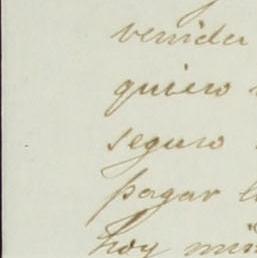 venida
quiero
seguro
pagar l
hoy